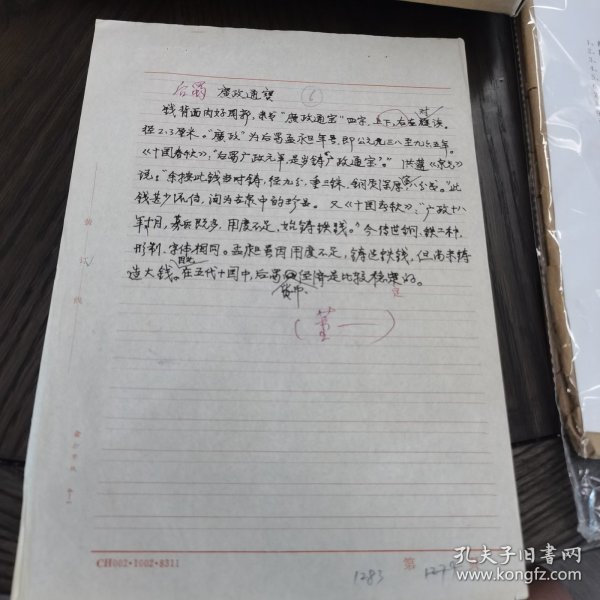 后蜀 廣政通寶 ⑥
钱背面内好周郭,钱文“廣政通宝”四字,上下、右左对读。
径2.3厘米。“廣政”为后蜀孟昶年号,即公元九三八至九六五年。
《十国春秋》:“后蜀广政元年,是岁铸广政通宝”。洪遵《泉志》
说:“余按此钱当时铸,径九分,重三铢,铜质深厚,八分书。”此
钱甚少流传,洵为古泉中的珍品。又《十国春秋》:“广政十八
年十月,募兵既多,用度不足,始铸铁钱。”今传世铜、铁二种,
形制、字体相同。孟昶虽因用度不足,铸造铁钱,但尚未铸
造大钱。因此在五代十国中,后蜀货币经济是比较稳定的。
(董一)
装 订 线
CH002·1002·8311
第
1283
127
孔夫子旧书网
www.kongfz.com